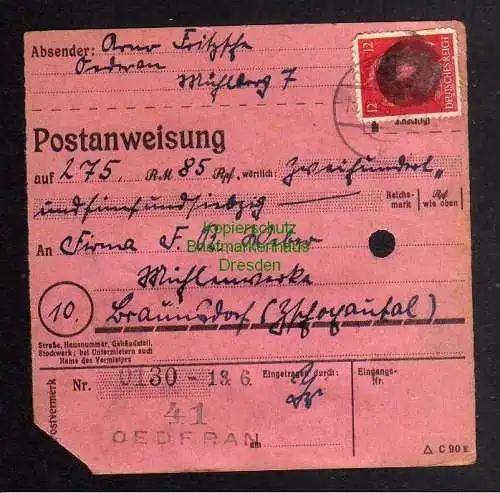 Absender: Arno Fritzsche
Oederan
Mühlberg 7
12 12
DEUTSCHES REICH
Postanweisung
auf 275. RM 85 Rpf, wörtlich: Zweihundert
undfünfundsiebzig
Reichs- Rpf
mark wie oben
An Firma F. W. Weber
Mühlenwerke
10. Braunsdorf (Zschopautal)
Kopierschutz
Briefmarkenhaus
Dresden
Straße, Hausnummer, Gebäudeteil,
Stockwerk; bei Untermietern auch
Name des Vermieters
Postvermerk
Nr. 0130 - 13. 6. Eingetragen durch:
Eingangs-
Nr.
41
OEDERAN am
△ C 90 E